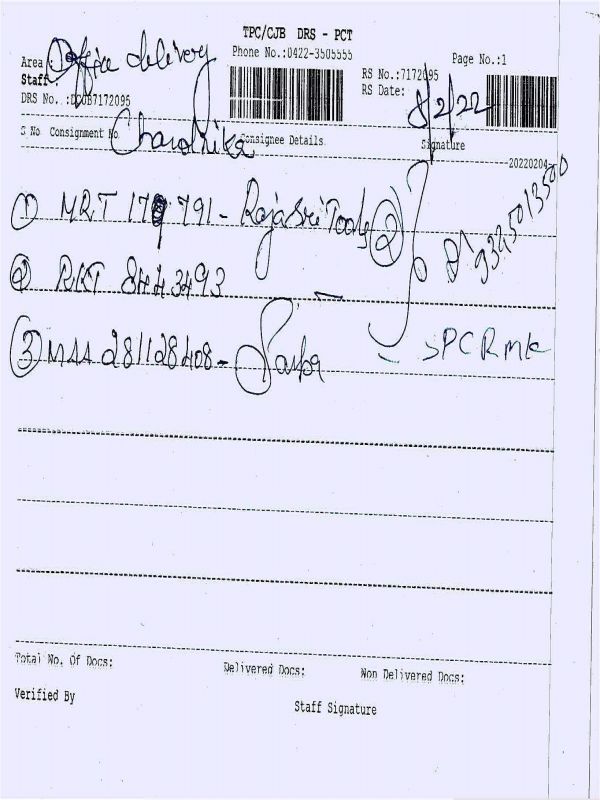 TPC/CJB DRS - PCT
Phone No.:0422-3505555
Page No.:1
Area : Office delivery
Staff :
RS No.:7172095
RS Date: 8/2/22
DRS No. :DCJB7172095
S No Consignment No. Consignee Details Signature
20220204
① MRT 179 791 - RajaSri Tools ②
9345013500
② RKT 844 3493
③ 281128408 -
Total No. Of Docs: Delivered Docs: Non Delivered Docs:
Verified By
Staff Signature